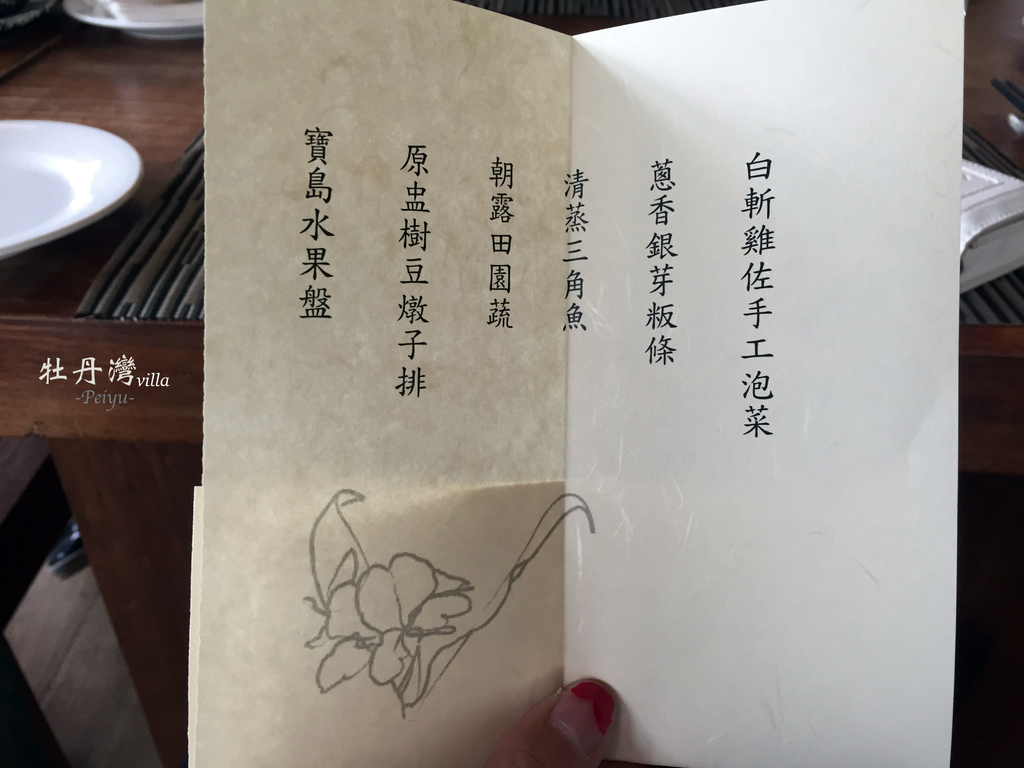 白斬雞佐手工泡菜
蔥香銀芽粄條
清蒸三角魚
朝露田園蔬
原盅樹豆燉子排
寶島水果盤
牡丹灣villa
-Peiyu-